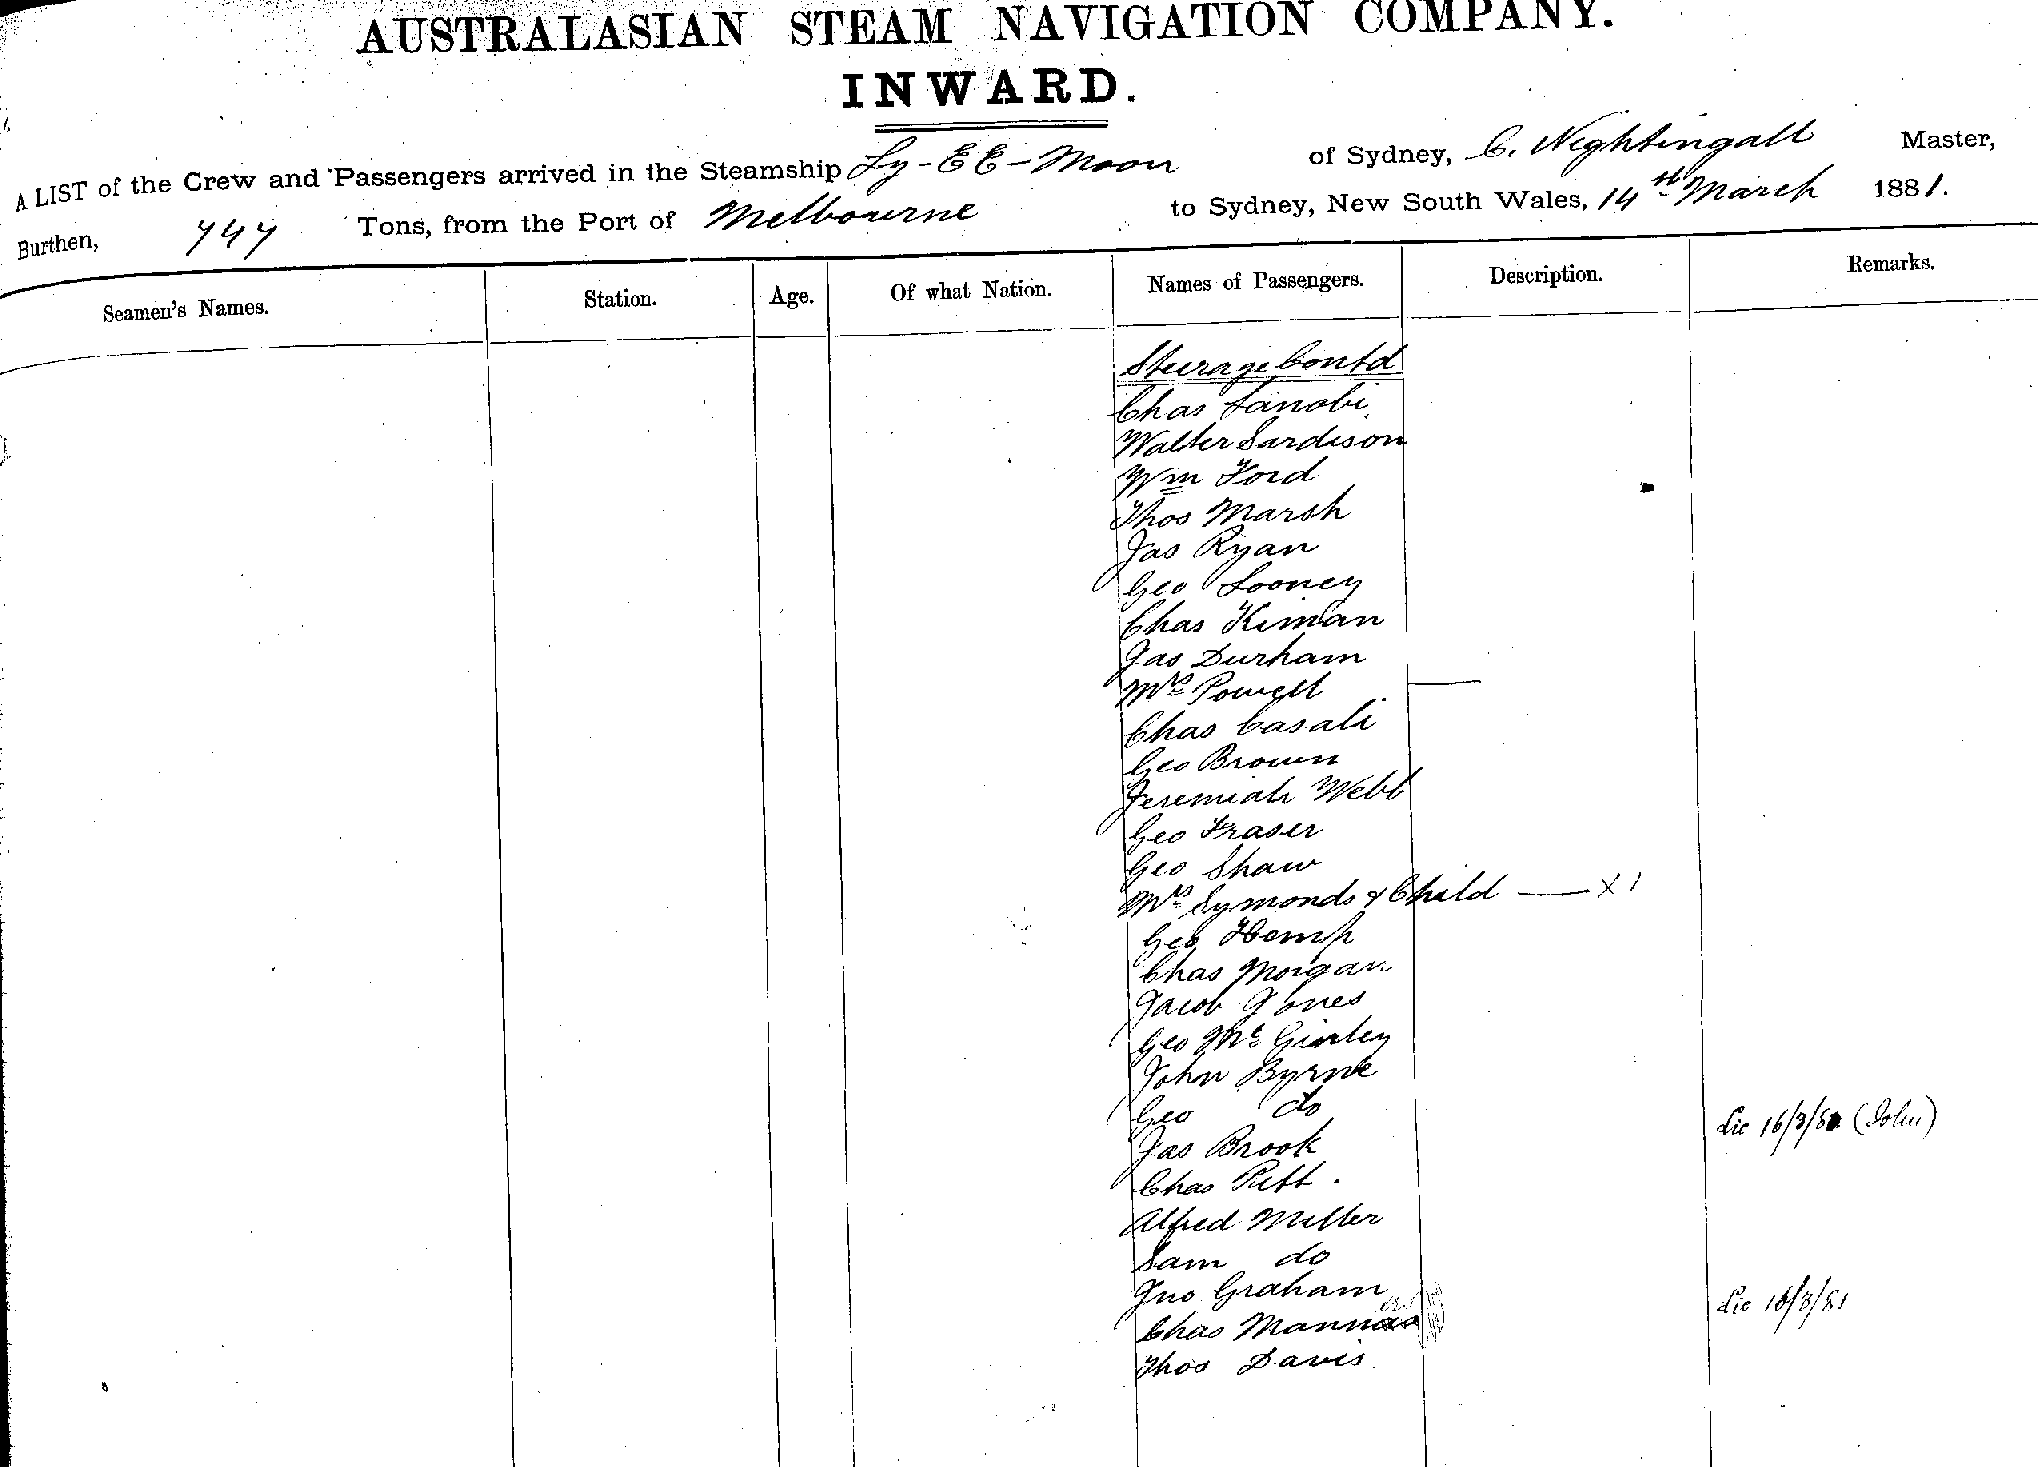 AUSTRALASIAN STEAM NAVIGATION COMPANY.
INWARD.
A LIST of the Crew and Passengers arrived in the Steamship Ly-EE-Moon of Sydney, C. Nightingall Master,
Burthen, 747 Tons, from the Port of Melbourne to Sydney, New South Wales, 14th March 1881.
Seamen's Names. Station. Age. Of what Nation. Names of Passengers. Description. Remarks.
Steerage Contd
Chas Lanobi
Walter Sardison
Wm Ford
Thos Marsh
Jas Ryan
Geo Looney
Chas Kiman
Jas Durham
Mrs Powell
Chas Casali
Geo Brown
Jeremiah Webb
Geo Fraser
Geo Shaw
Mrs Symonds & Child — X 1
Geo Hemp
Chas Morgan
Jacob Jones
Geo McGinley
John Byrne
Geo do
Lic 16/3/81 (John)
Jas Brook
Chas Pitt.
Alfred Miller
Sam do
Jno Graham
Lic 16/3/81
Chas
Thos Davis